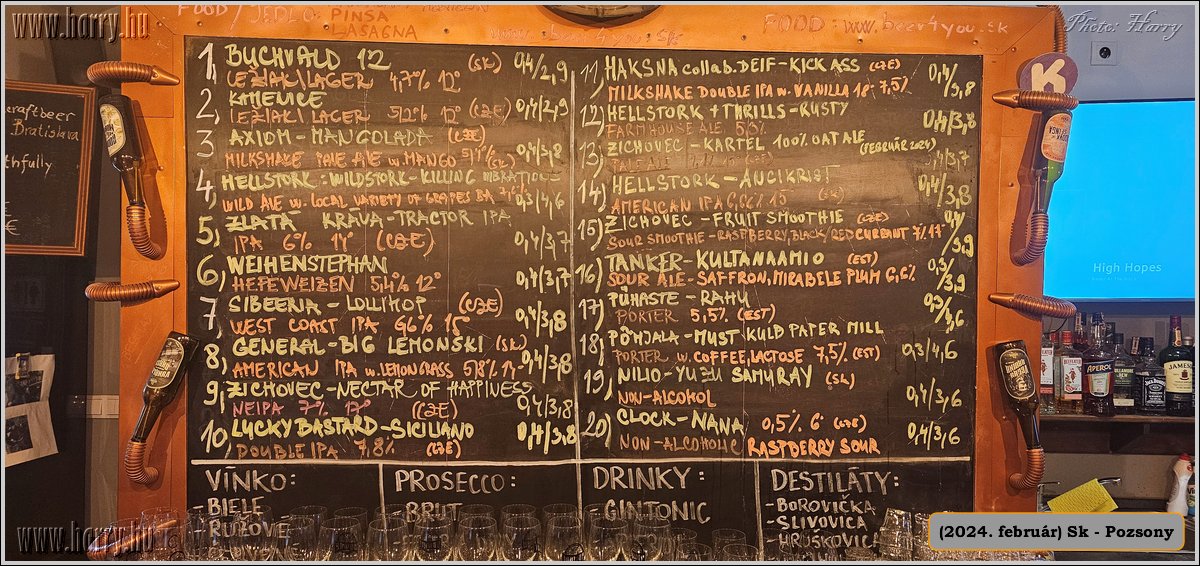 www.horry.hu
Photo: Harry
FOOD / JEDLO:
PINSA
LASAGNA
www.beer4you.sk
FOOD: www.beer4you.sk
craftbeer
Bratislava
thfully
€
K
1, BUCHVALD 12 (SK) 0,4/2,9
LEŽIAK/LAGER 4,7% 12°
2, KAMENICE
LEŽIAK/LAGER 5,2% 12° (CZE) 0,4/2,9
3, AXIOM - MANGOLADA (CZE)
MILKSHAKE PALE ALE w MANGO 0,4/3,8
4, HELLSTORK: WILDSTORK - KILLING VIBRATIONS
WILD ALE w. LOCAL VARIETY OF GRAPES BA 0,3/4,6
5, ZLATÁ KRAVA - TRACTOR IPA
IPA 6% 14° (CZE) 0,4/3,7
6, WEIHENSTEPHAN
HEFEWEIZEN 5,4% 12° 0,4/3,7
7, SIBEERIA - LOLLIHOP (CZE)
WEST COAST IPA 6,6% 15° 0,4/3,8
8, GENERAL - BIG LEMONSKI (SK)
AMERICAN IPA w. LEMONGRASS 5,8% 14° 0,4/3,8
9, ZICHOVEC - NECTAR OF HAPPINESS
NEIPA 7% 17° (CZE) 0,4/3,8
10, LUCKY BASTARD - SICILIANO
DOUBLE IPA 7,8% (CZE) 0,4/3,8
11) HAKSNA collab. DEIF - KICK ASS (CZE) 0,4/3,8
MILKSHAKE DOUBLE IPA w. VANILLA 18° 7,5%
12) HELLSTORK + THRILLS - RUSTY
FARMHOUSE ALE 0,4/3,8
13) ZICHOVEC - KARTEL 100% OAT ALE (FEBRUÁR 2024)
PALE ALE 0,4/3,7
14) HELLSTORK - ANCIKRIST
AMERICAN IPA 6,6% 15° (SK) 0,4/3,8
15) ZICHOVEC - FRUIT SMOOTHIE (CZE)
SOUR SMOOTHIE - RASPBERRY, BLACK/RED CURRANT 7% 17° 0,4/3,9
16) TANKER - KULTANAAMIO (EST)
SOUR ALE - SAFFRON, MIRABELE PLUM 6,6% 0,3/3,9
17) PÜHASTE - RAHU
PORTER 5,5% (EST)
18) PÕHJALA - MUST KULD PAPER MILL
PORTER w. COFFEE, LACTOSE 7,5% (EST) 0,3/4,6
19) NILIO - YUZU SAMURAY (SK)
NON-ALKOHOL 0,4/3,6
20) CLOCK - NANA 0,5% 6° (CZE)
NON-ALCOHOLIC RASPBERRY SOUR 0,4/3,6
VÍNKO:
- BIELE
- RUŽOVÉ
PROSECCO:
- BRUT
DRINKY:
- GINTONIC
DESTILÁTY:
- BOROVIČKA
- SLIVOVICA
- HRUŠKOVICA
High Hopes
APEROL
JAMESON
www.horry.hu
(2024. február) Sk - Pozsony